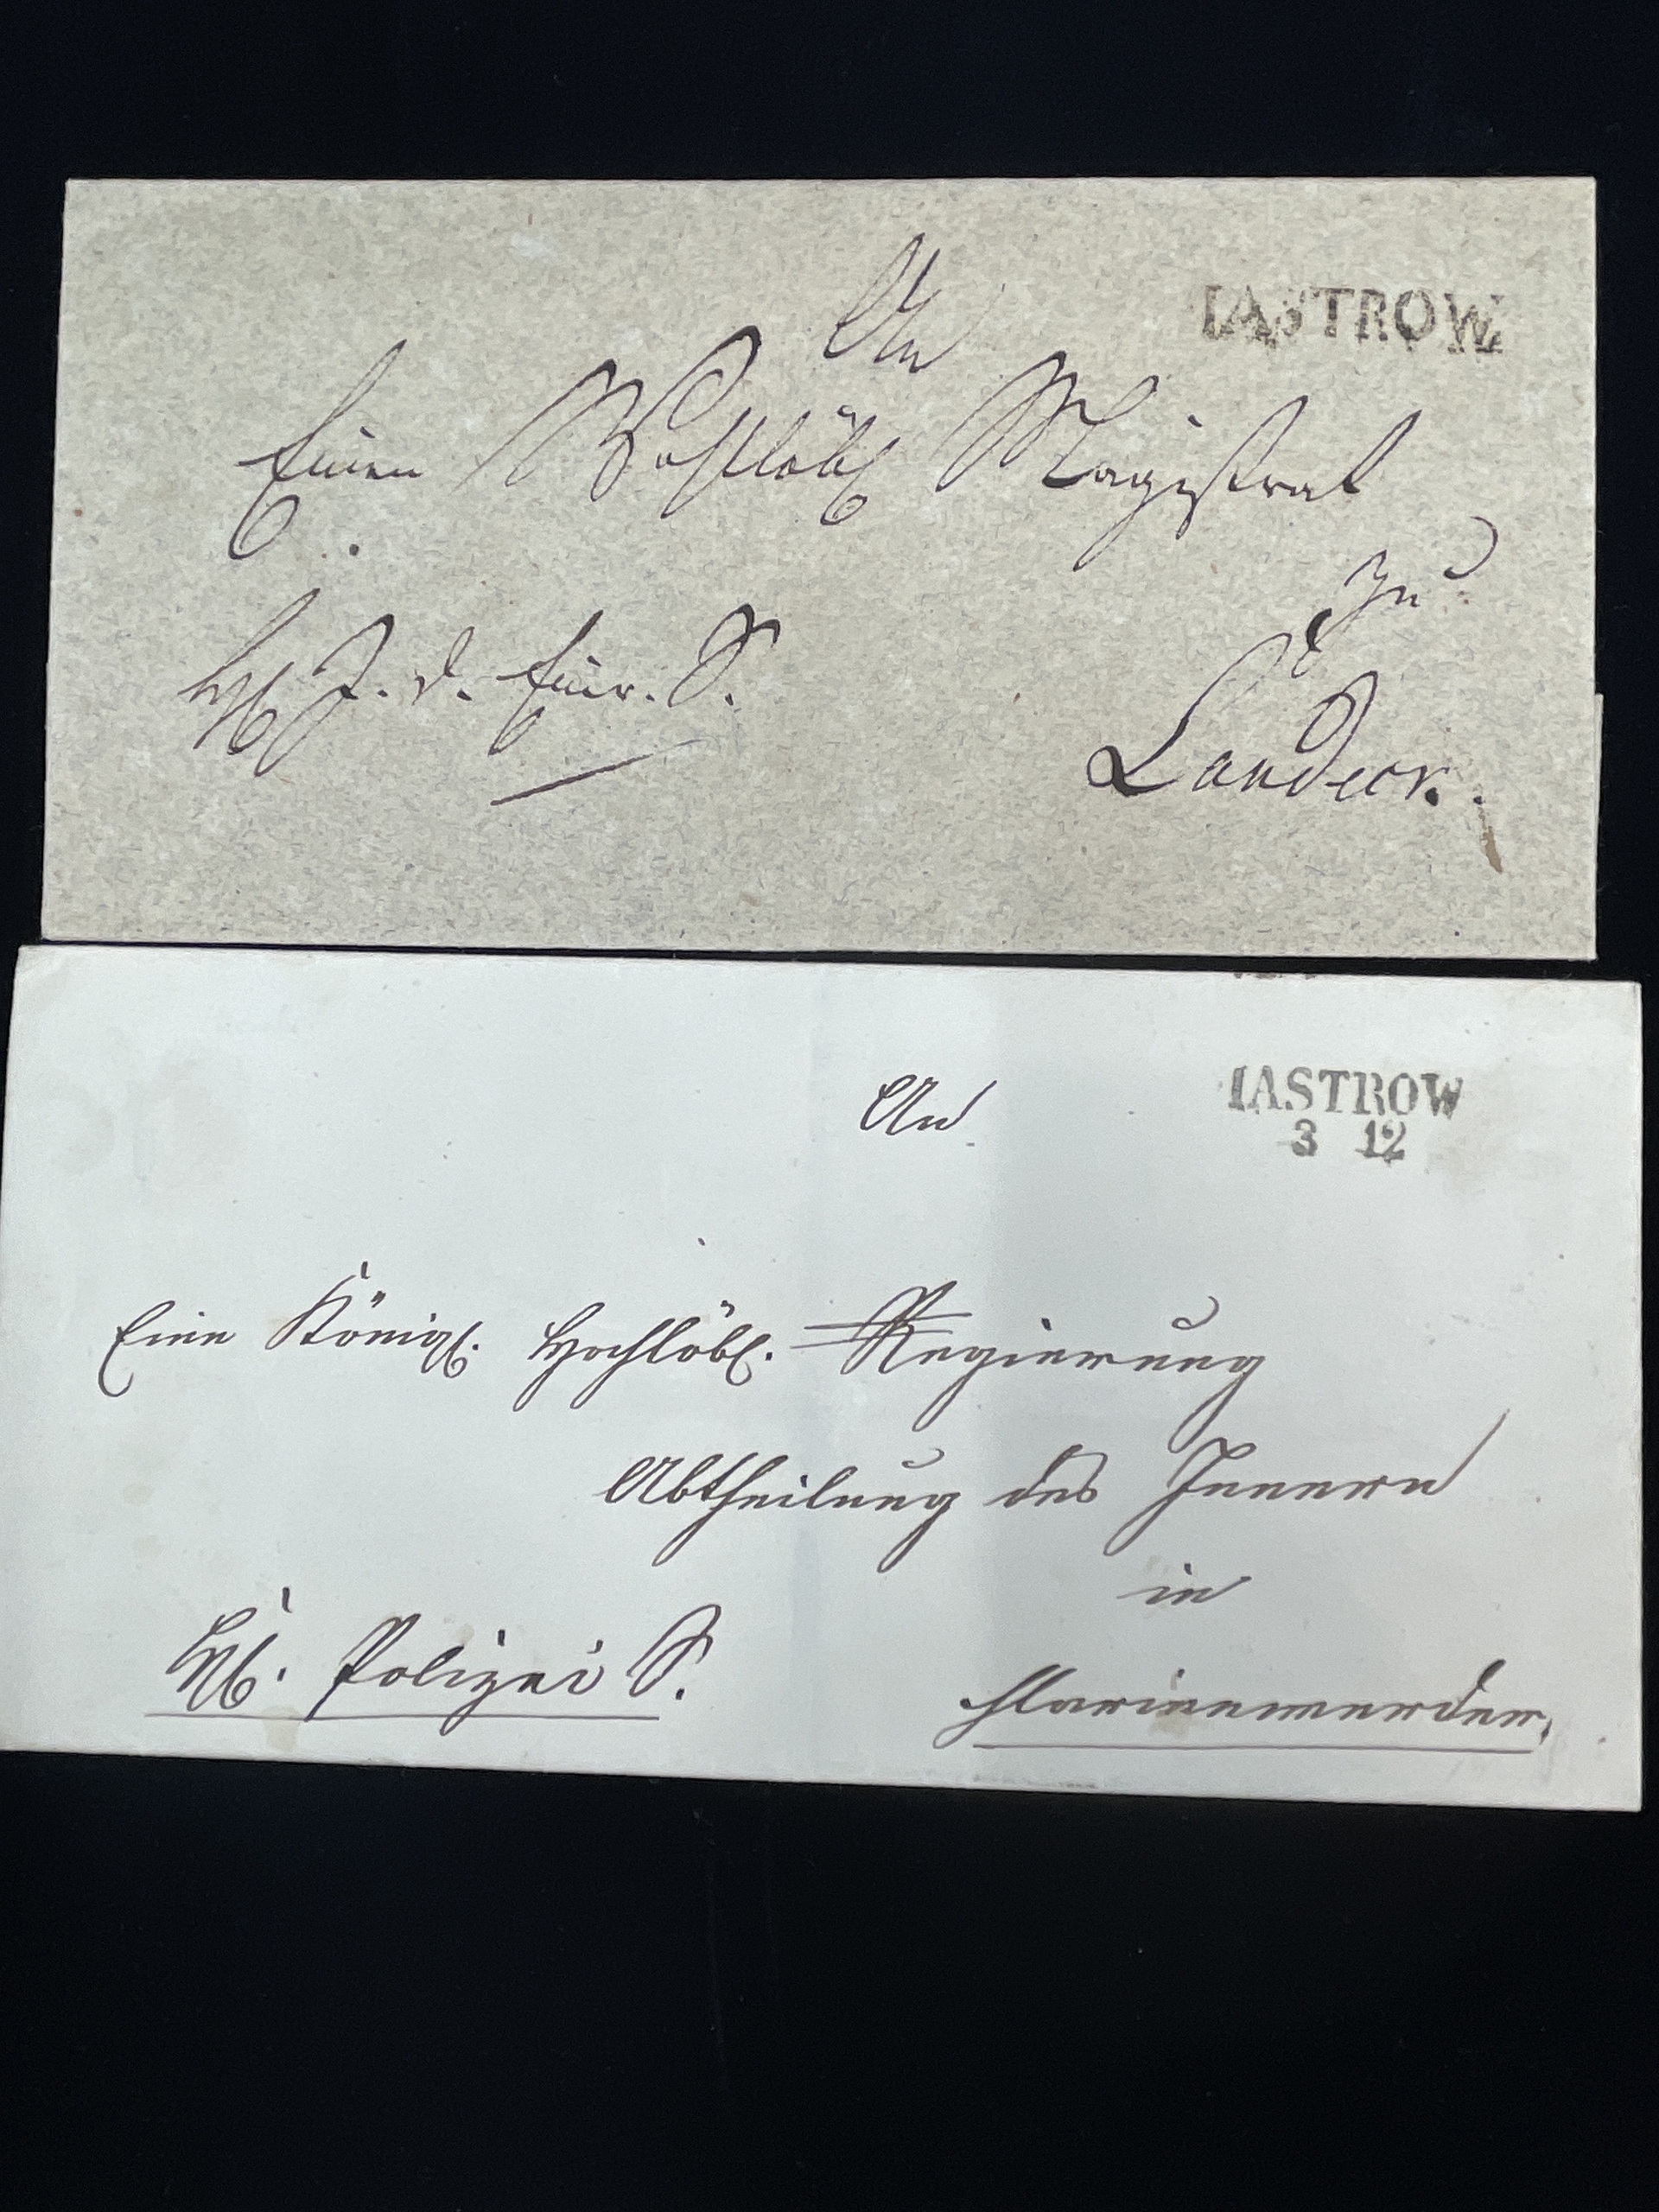 IASTROW
An
Einen Wohllöbl Magistrat
zu
Landeck.
S.
IASTROW
3 12
An
Eine Königl. Hochlöbl. Regierung
Abtheilung des Innern
in
Polizei S.
Marienwerder.